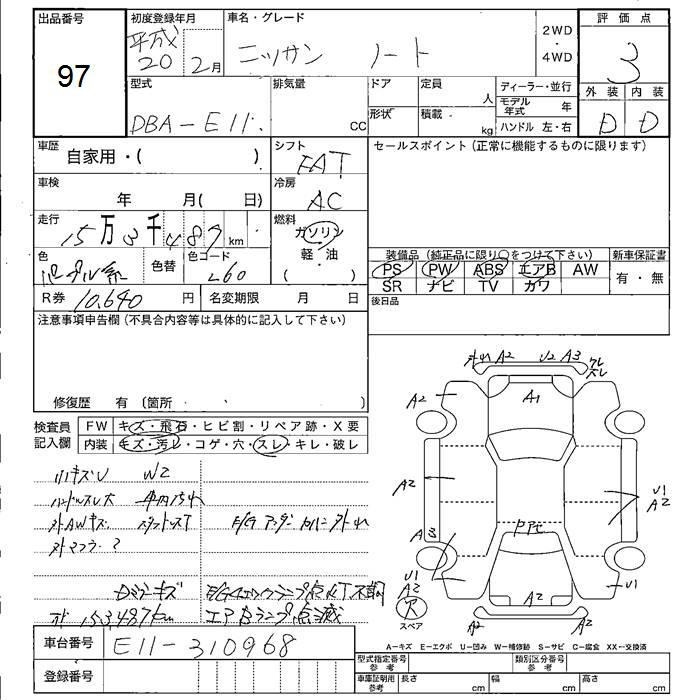 出品番号
97
初度登録年月
平成
20 2月
車名・グレード
ニッサン ノート
2WD
・
4WD
評価点
3
外装 内装
D D
型式
DBA-E11
排気量
CC
ドア
形状
定員
人
積載
kg
ディーラー・並行
モデル
年式 年
ハンドル 左・右
車歴
自家用・( )
シフト
FAT
セールスポイント (正常に機能するものに限ります)
車検
年 月( 日)
冷房
AC
走行
15万3千487km
燃料
ガソリン
軽・油
( )
色
パープル系
色替
色コード
L60
装備品 (純正品に限り○をつけて下さい)
PS PW ABS エアB AW
SR ナビ TV カワ
新車保証書
有・無
R券 10,640 円
名変期限 月 日
後日品
注意事項申告欄 (不具合内容等は具体的に記入して下さい)
修復歴 有 (箇所 )
検査員
記入欄
FW キズ・飛石・ヒビ割・リペア跡・X要
内装 キズ・汚レ・コゲ・穴・スレ・キレ・破レ
小キズU W2
ハンドルスレ大 車内汚れ
外AWキズ スタッドレスT E/Gアンダーカバー外れ
外マフラー?
Dミラーキズ E/Gチェックランプ点灯不調
才 153487km エアBランプ点滅
外れ A2 U2 A3
A2
A1
A2
U1
A2
A3
PPt
U1
A2
穴
スペア
U1
A2
A2
A2
車台番号 E11-310968
登録番号
A-キズ E-エクボ U-凹み W-補修跡 S-サビ C-腐食 XX-交換済
型式指定番号
参考
類別区分番号
参考
車庫証明用
参考
長さ cm
幅 cm
高さ cm